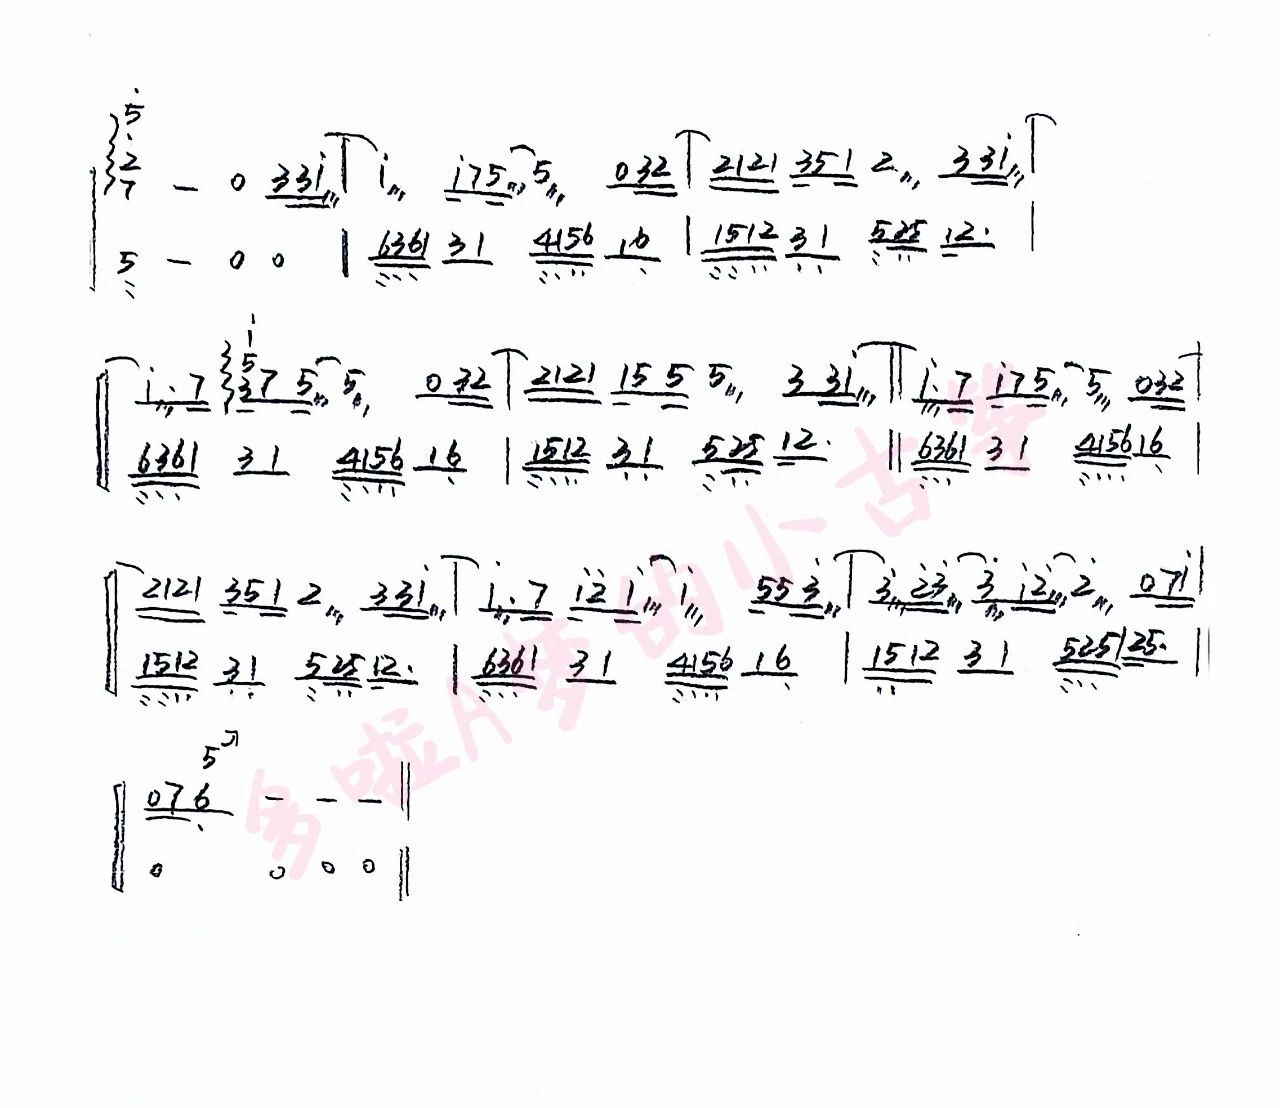 5
2
7 – 0 331 | 1 175 5 032 | 2121 351 2 331 |
5 – 0 0 | 6361 31 4156 16 | 1512 31 525 12. |
1
5
1. 7 375 5 032 | 2121 15 5 5 3 31 || 1. 7 175 5 032 |
6361 31 4156 16 | 1512 31 525 12. || 6361 31 4156 16 |
2121 351 2 331 | 1. 7 121 1 553 | 3 23 3 12 2 071 |
1512 31 525 12. | 6361 31 4156 16 | 1512 31 525125. |
5
076 – – – ||
0 0 0 0 ||
多啦A梦的小古筝